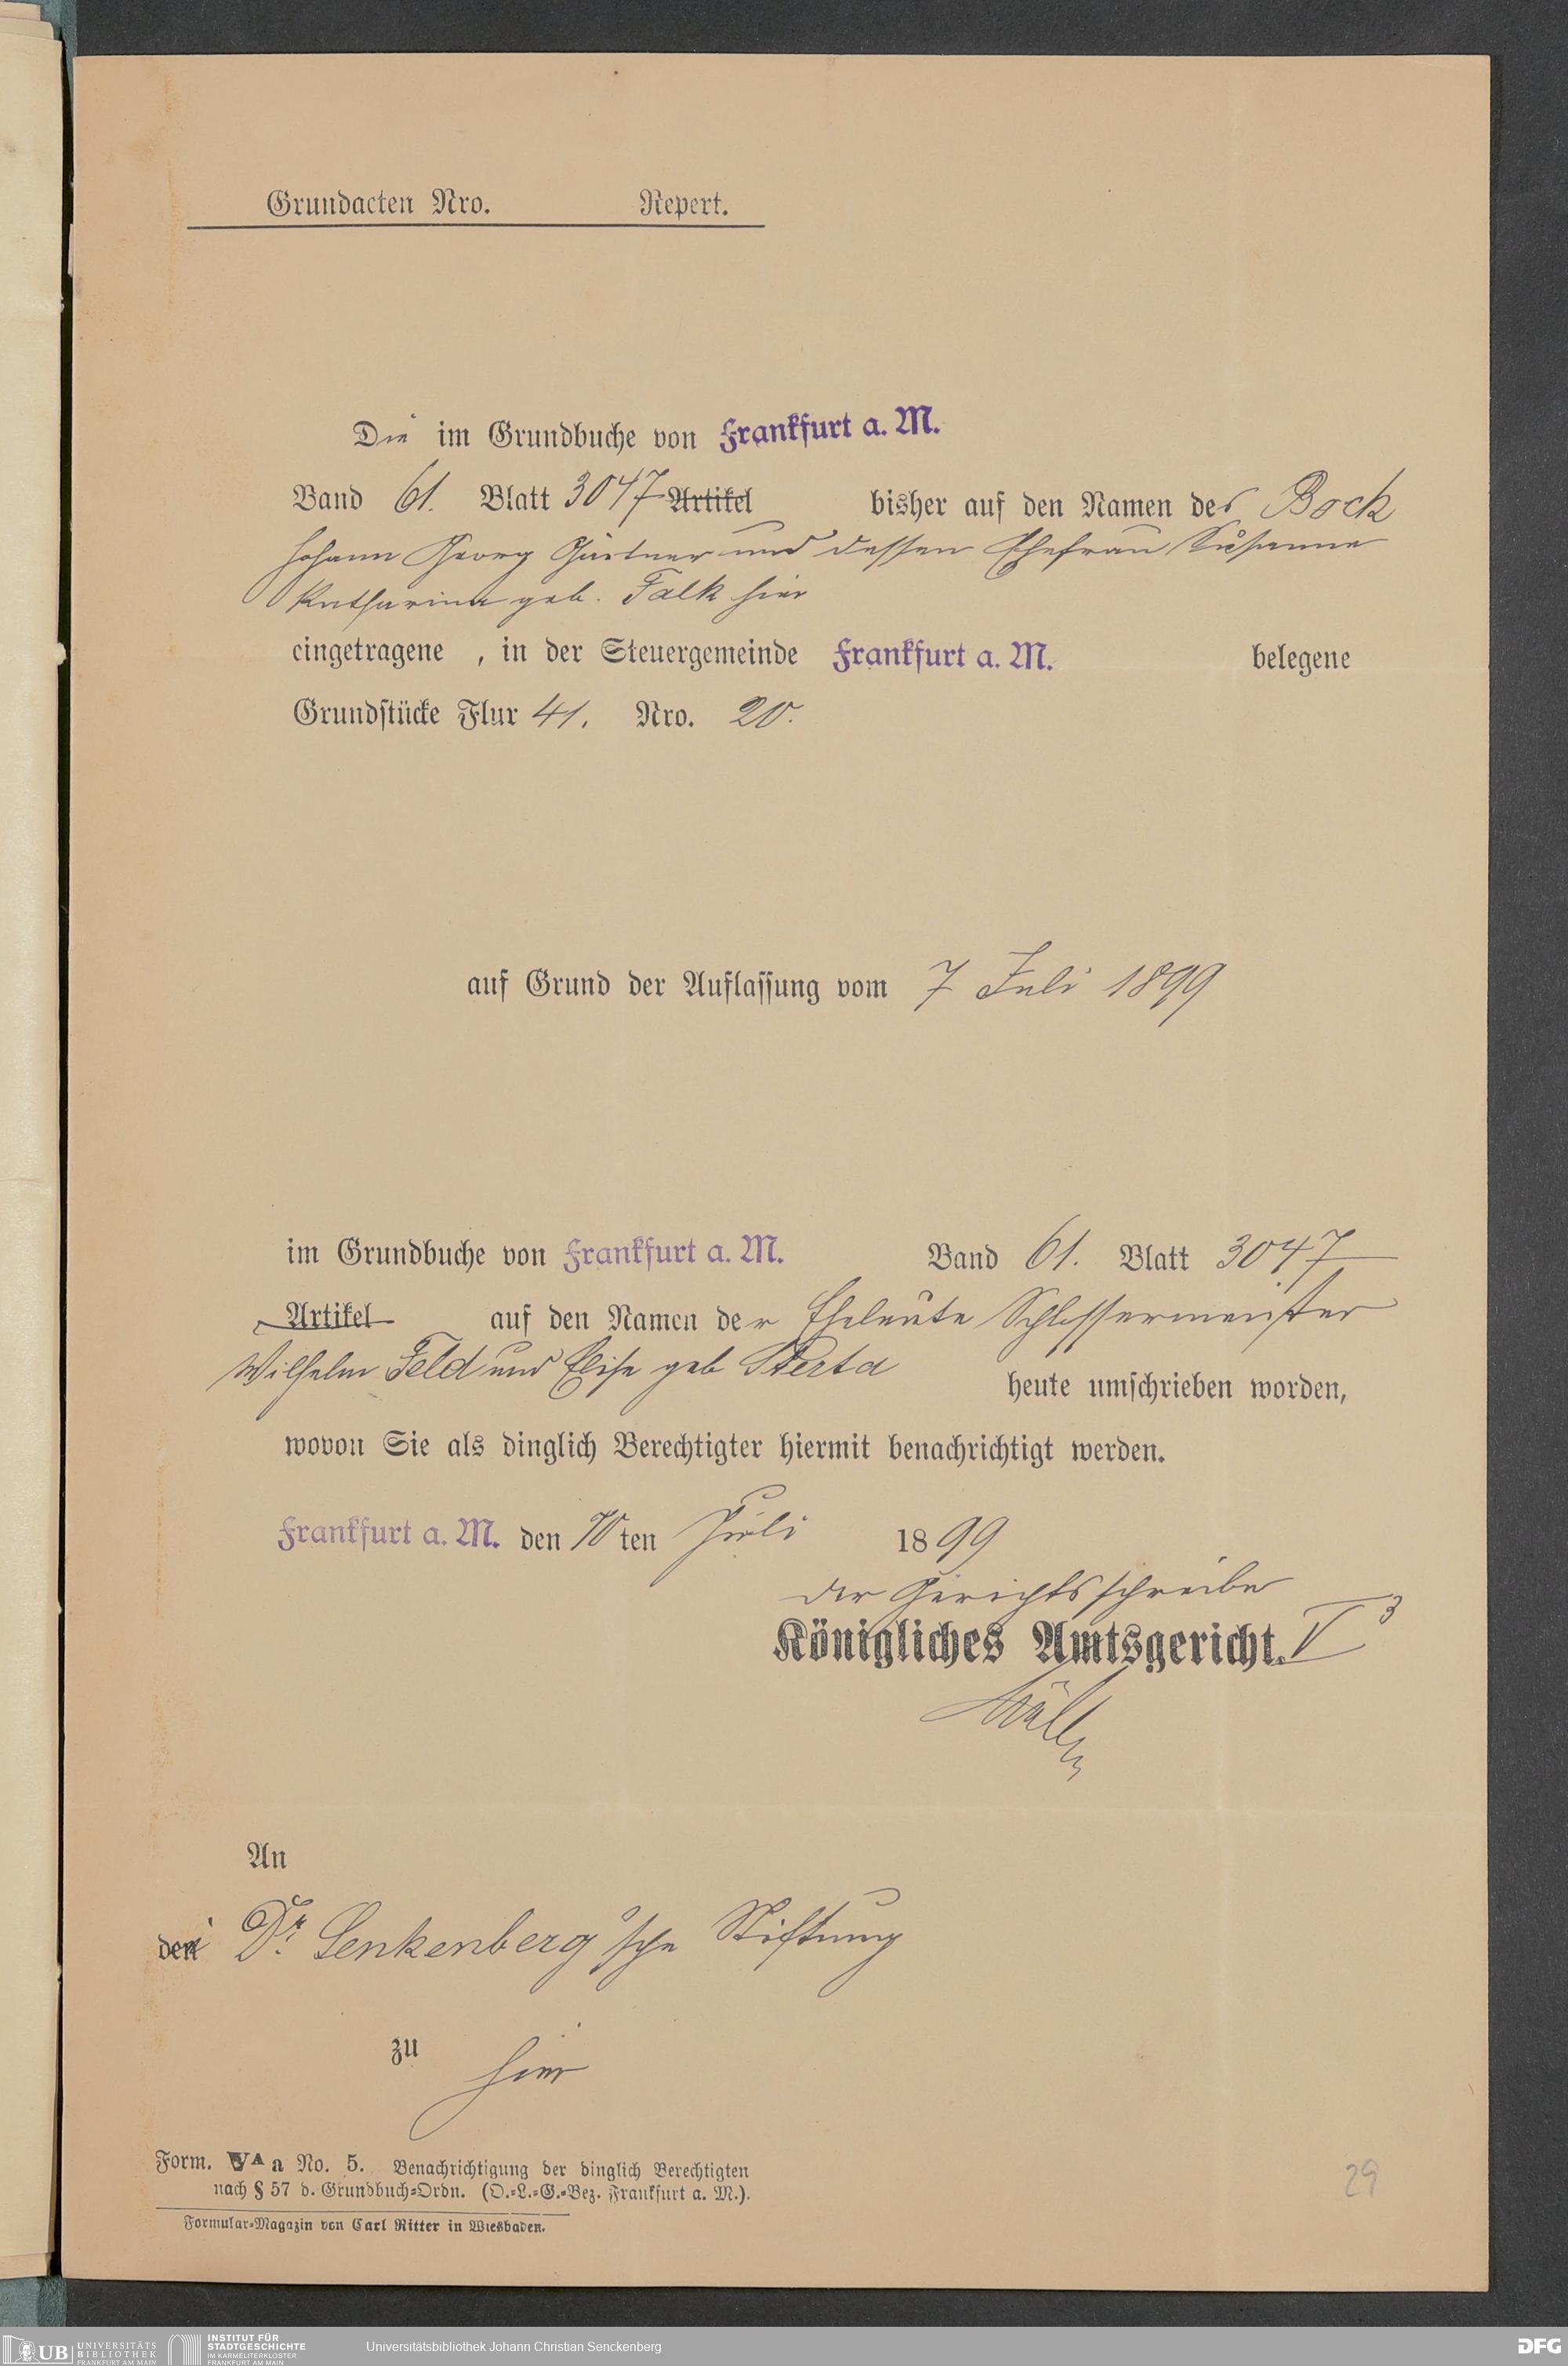 Grundacten Nro. Repert.
Die im Grundbuche von Frankfurt a. M.
Band 61. Blatt 3047 Artikel bisher auf den Namen des Bock
Johann Georg Gärtner und dessen Ehefrau Susanne
Katharina geb. Falk hier
eingetragene , in der Steuergemeinde Frankfurt a. M. belegene
Grundstücke Flur 41. Nro. 20.
auf Grund der Auflassung vom 7 Juli 1899
im Grundbuche von Frankfurt a. M. Band 61. Blatt 3047
Artikel auf den Namen der Eheleute Schlossermeister
Wilhelm Feld und Elise geb
heute umschrieben worden,
wovon Sie als dinglich Berechtigter hiermit benachrichtigt werden.
Frankfurt a. M. den 10ten Juli 1899
Der Gerichtsschreiber
Königliches Amtsgericht. V 3
An
die Dr. Senkenberg'sche Stiftung
zu hier
Form. V A a No. 5. Benachrichtigung der dinglich Berechtigten
nach § 57 d. Grundbuch-Ordn. (O.-L.-G.-Bez. Frankfurt a. M.).
Formular-Magazin von Carl Ritter in Wiesbaden.
29
UB UNIVERSITÄTS
BIBLIOTHEK
FRANKFURT AM MAIN
INSTITUT FÜR
STADTGESCHICHTE
IM KARMELITERKLOSTER
FRANKFURT AM MAIN
Universitätsbibliothek Johann Christian Senckenberg
DFG